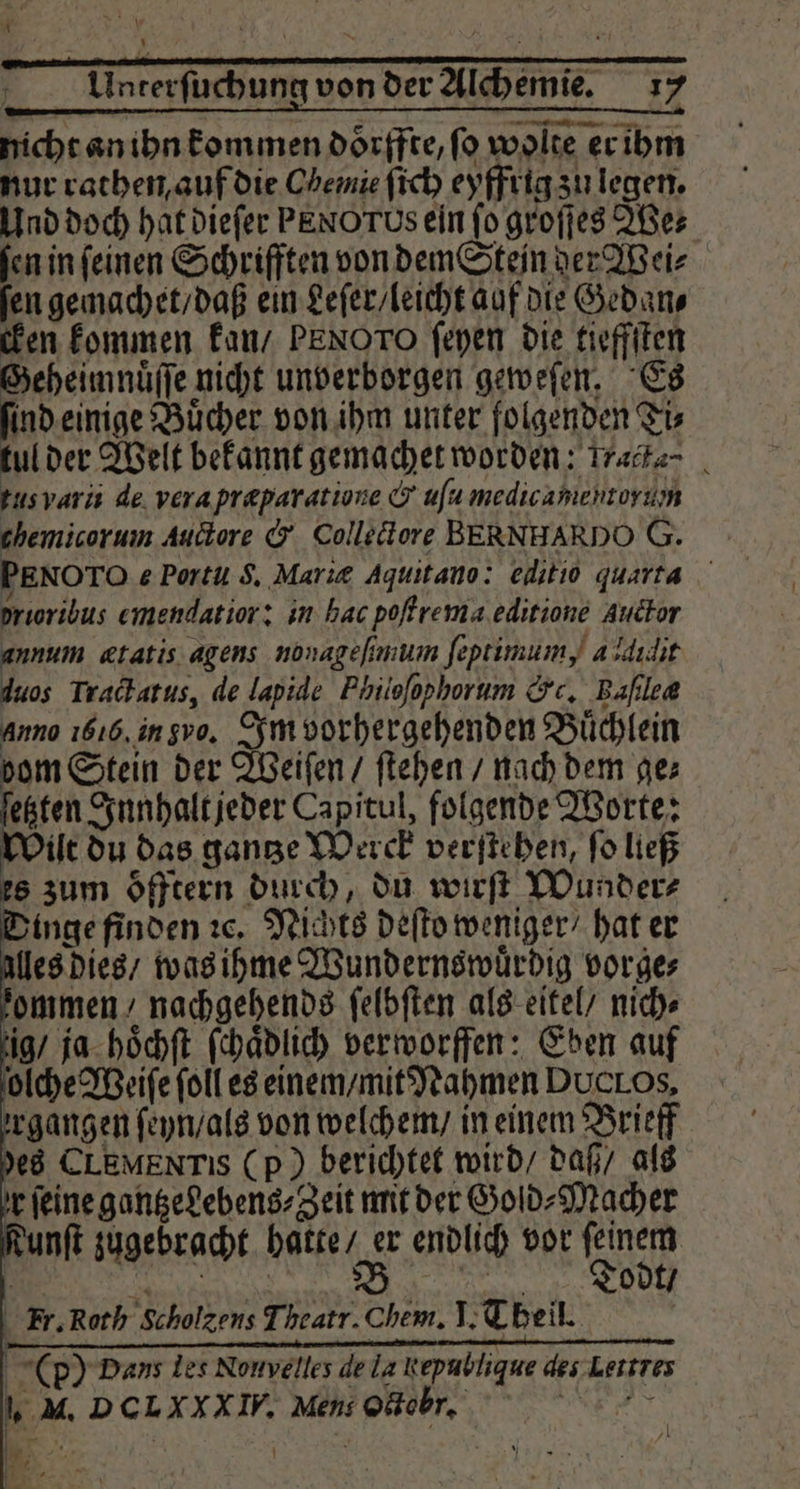 Unterſuchung von der Alchemie. 17
nicht an ihn kommen doͤrffte, ſo wolte er ihm
nur rathen, auf die Chemie ſich eyffrig zu legen.
Und doch hat dieſer PENOTUS ein ſo groſſes We⸗
ſen in ſeinen Schrifften von dem Stein der Wei⸗
ſen gemachet/ daß ein Leſer/ leicht auf die Gedan⸗
cken kommen kan/ PENOTO ſeyen die tieffſten
Geheimnuͤſſe nicht unverborgen geweſen. Es
ſind einige Buͤcher von ihm unter folgenden Ti⸗
tul der Welt bekannt gemachet worden: Tracta-
tus varii de vera præparatione & uſu medicamentorum
chemicorum Auctore & Collectore BERNHARDO G.
PENOTO e Portu S. Mariæ Aquitano: editio quarta
prioribus emendatior: in hac poſtrema editione Auctor
annum ætatis agens nonageſimum ſeptimum, addidit
duos Tractatus, de lapide Philoſophorum &c. Baſileæ
Anno 1616. in 8vo. Im vorhergehenden Buͤchlein
vom Stein der Weiſen / ſtehen / nach dem ge⸗
ſetzten Innhalt jeder Capitul, folgende Worte:
Wilt du das gantze Werck verſtehen, ſo ließ
es zum oͤfftern durch, du wirſt Wunder⸗
Dinge finden ꝛc. Nichts deſto weniger/ hat er
alles dies/ was ihme Wundernswuͤrdig vorge⸗
kommen / nachgehends ſelbſten als eitel/ nich⸗
tig/ ja hoͤchſt ſchaͤdlich verworffen: Eben auf
ſolche Weiſe ſoll es einem/ mit Nahmen DUCLOS,
ergangen ſeyn/ als von welchem/ in einem Brieff
des CLEMENTIS (p) berichtet wird/ daß/ als
er ſeine gantze Lebens⸗Zeit mit der Gold⸗Macher
Kunſt zugebracht hatte/ er endlich vor ſeinem
B Todt/
Fr. Roth Scholzens Theatr. Chem. I. Theil.
(p) Dans les Nouvelles de la Republique des Lettres
M. DCLXXXIV. Mens Octobr.